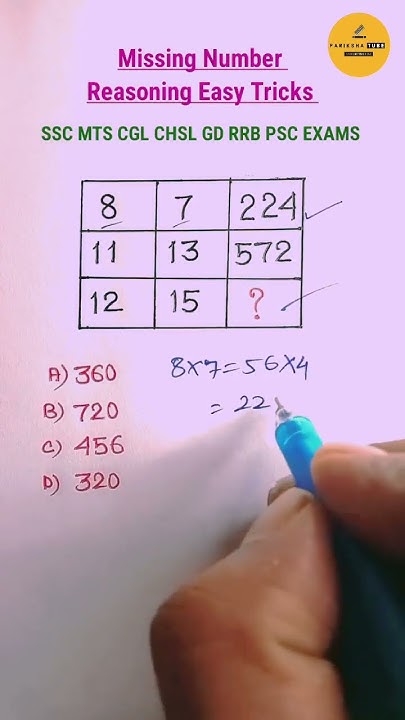 PARIKSHA TUBE
Missing Number
Reasoning Easy Tricks
SSC MTS CGL CHSL GD RRB PSC EXAMS
8 7 224
11 13 572
12 15 ?
A) 360
B) 720
C) 456
D) 320
8×7=56×4
= 22